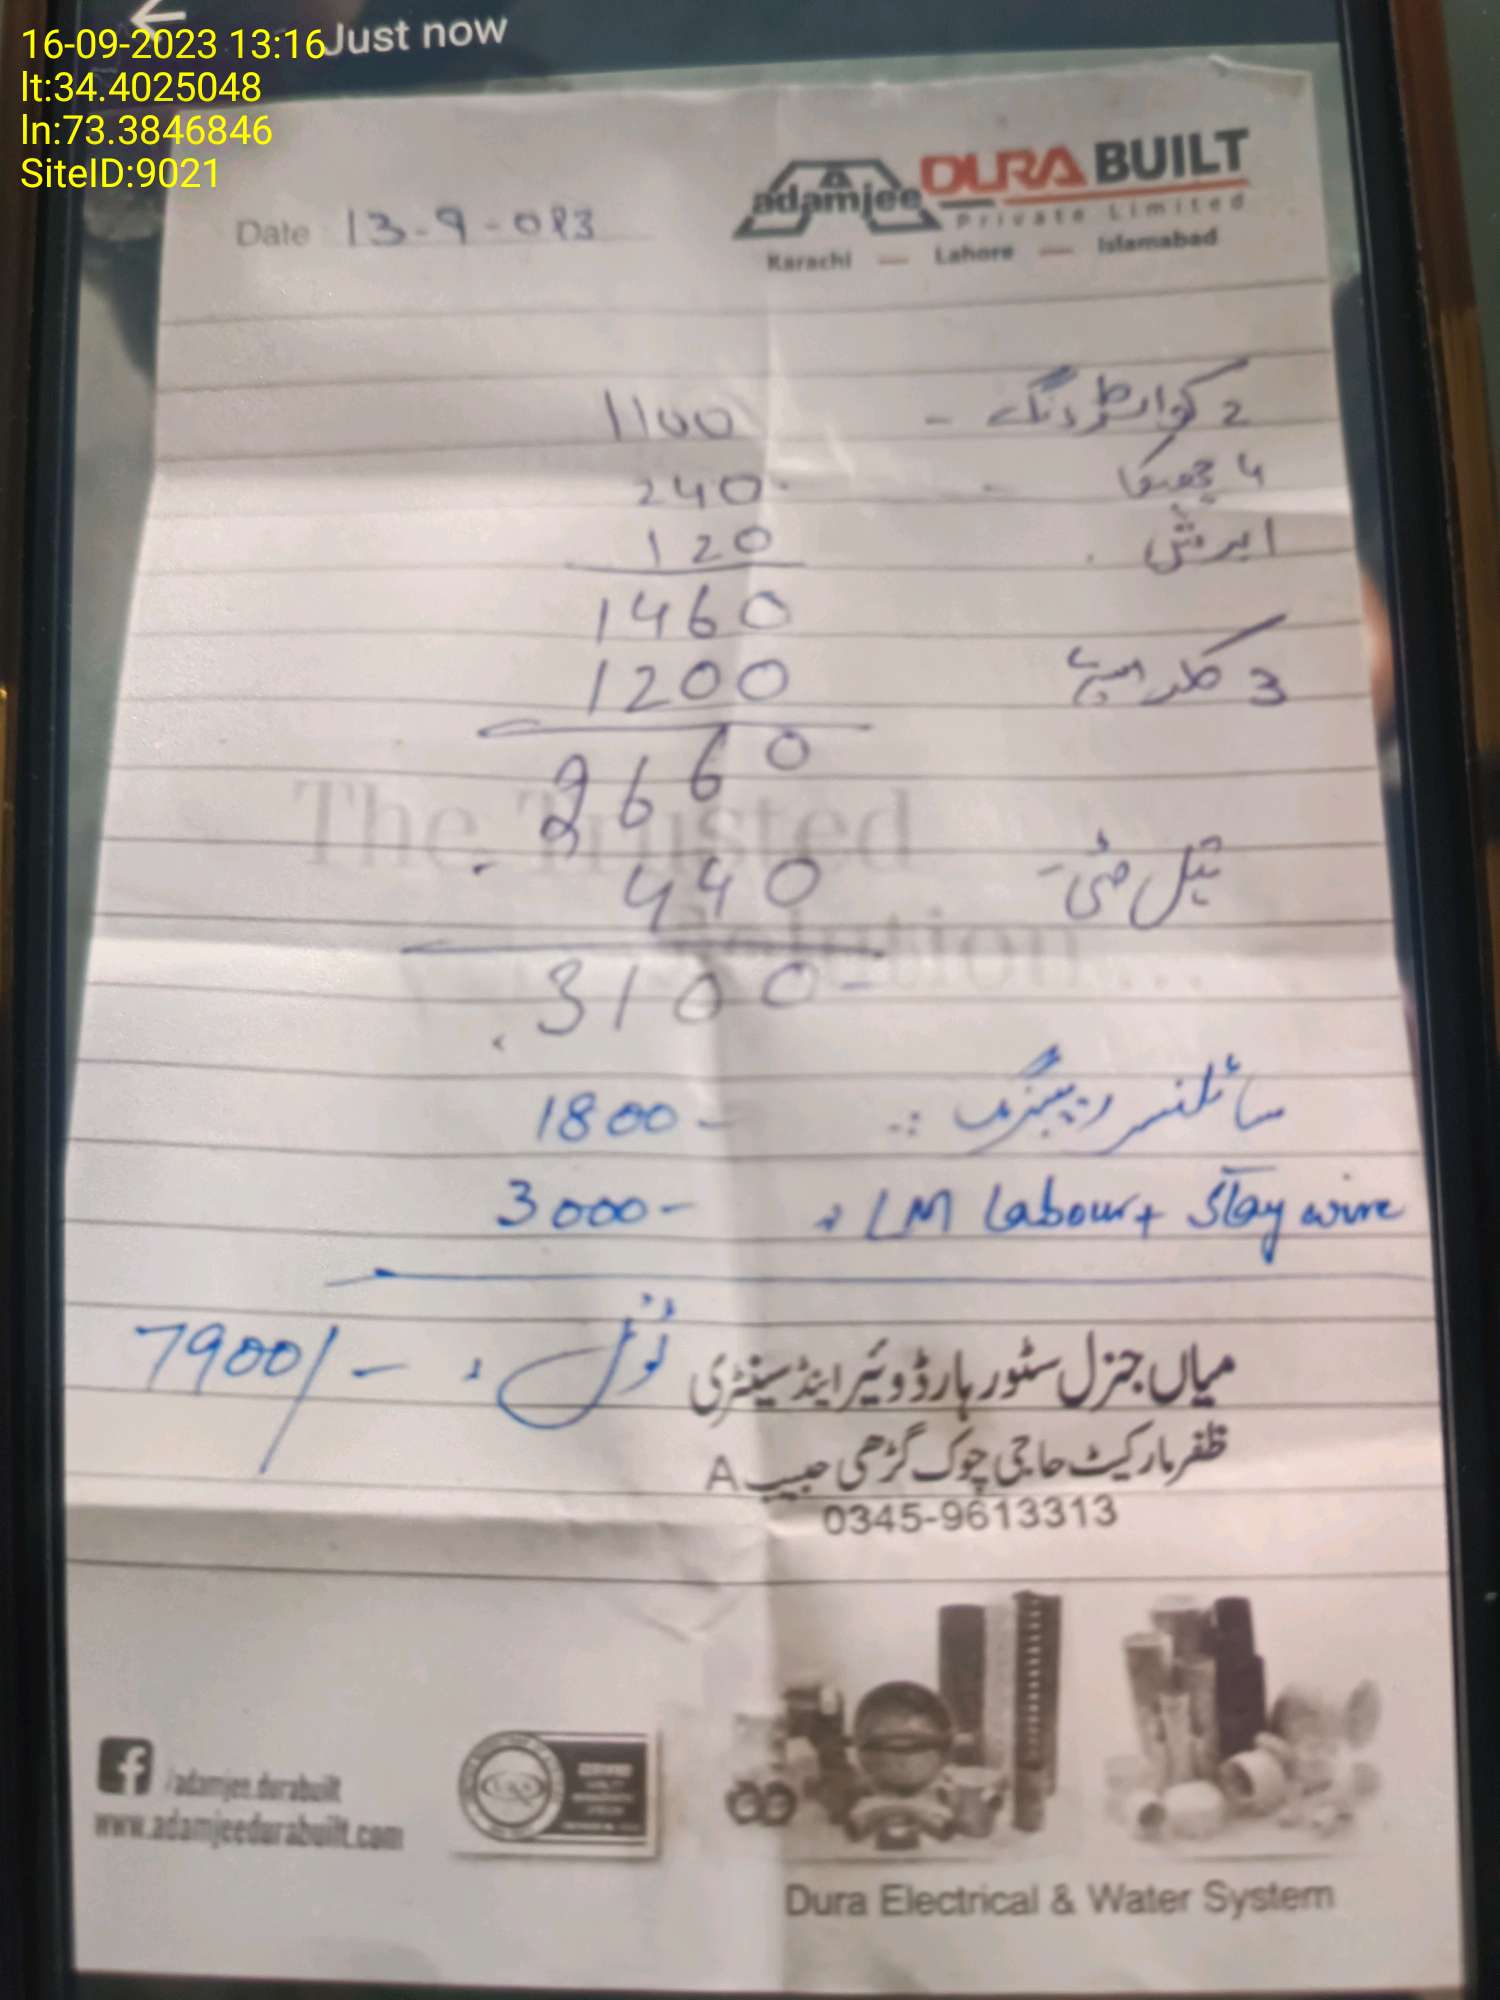 Just now
16-09-2023 13:16
lt:34.4025048
ln:73.3846846
SiteID:9021
adamjee DURA BUILT
Private Limited
Karachi — Lahore — Islamabad
Date 13-9-023
2 کوارٹر رنگ - 1100
4 240
1 برش 120
1460
3 1200
2660
تیل مٹی - 440
3100-
سائلنسر ریپئرنگ 1800-
LM Labour + Stay wire 3000-
ٹوٹل 7900/-
The Trusted
Solution...
میاں جنرل سٹور ہارڈویئر اینڈ سینٹری
ظفر مارکیٹ حاجی چوک گڑھی حبیب A
0345-9613313
/adamjee.durabuilt
www.adamjeedurabuilt.com
Dura Electrical & Water System